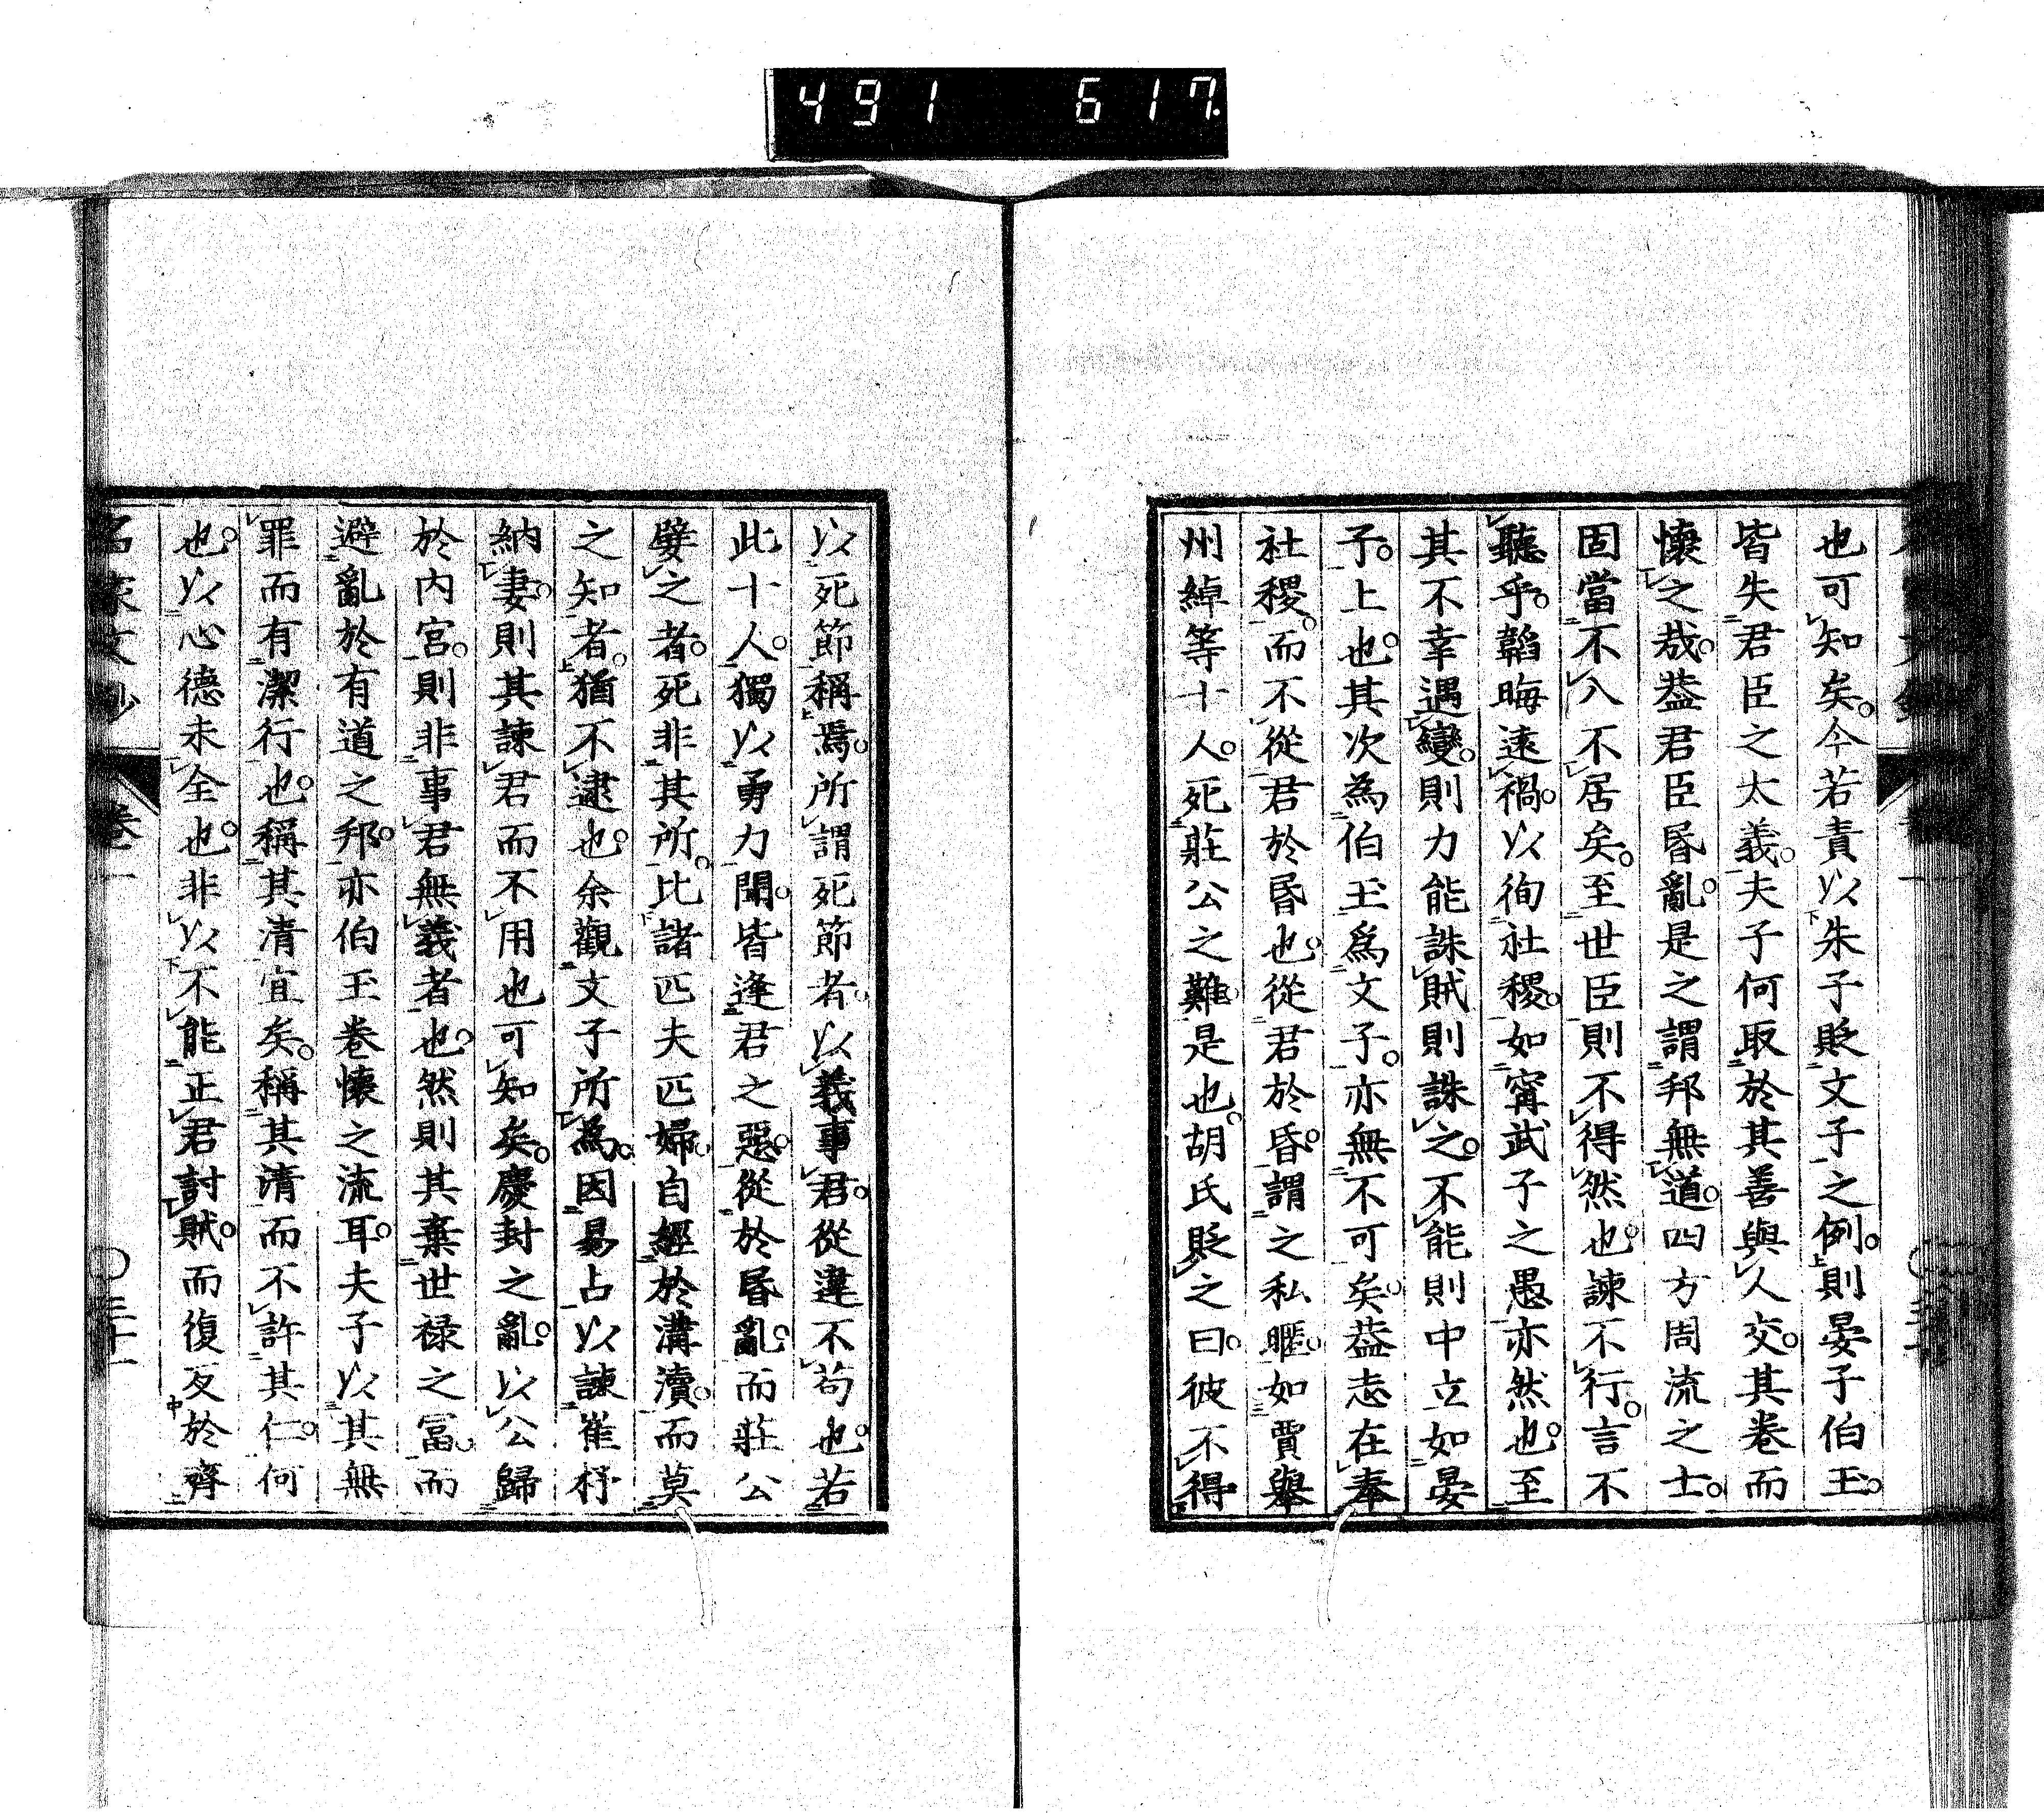 491 617
也可知矣。今若責以朱子貶文子之例。則晏子伯玉。
皆失君臣之太義。夫子何取於其善與人交。其卷而
懷之哉。葢君臣昬亂。是之謂邦無道。四方周流之士。
固當不入不居矣。至世臣則不得然也。諫不行。言不
聽乎。韜晦遠禍。以徇社稷。如甯武子之愚亦然也。至
其不幸遇變。則力能誅賊則誅之。不能則中立如晏
子。上也。其次為伯玉爲文子。亦無不可矣。葢志在奉
社稷。而不從君於昬也。從君於昏。謂之私暱。如賈舉
州綽等十人。死莊公之難。是也。胡氏貶之曰。彼不得
以死節稱焉。所謂死節者。以義事君。從違不苟也。若
此十人。獨以勇力聞。皆逢君之惡。從於昬亂。而莊公
嬖之者。死非其所。比諸匹夫匹婦。自經於溝瀆。而莫
之知者。猶不逮也。余觀文子所為。因易占以諫崔杼
納妻。則其諫君而不用也可知矣。慶封之亂。以公歸
於内宮。則非事君無義者也。然則其棄世禄之冨。而
避亂於有道之邦。亦伯玉卷懷之流耳。夫子以其無
罪而有潔行也。稱其清宜矣。稱其清而不許其仁。何
也。以心德未全也。非以不能正君討賊。而復反於齊
名家文鈔 卷一 〇三十一